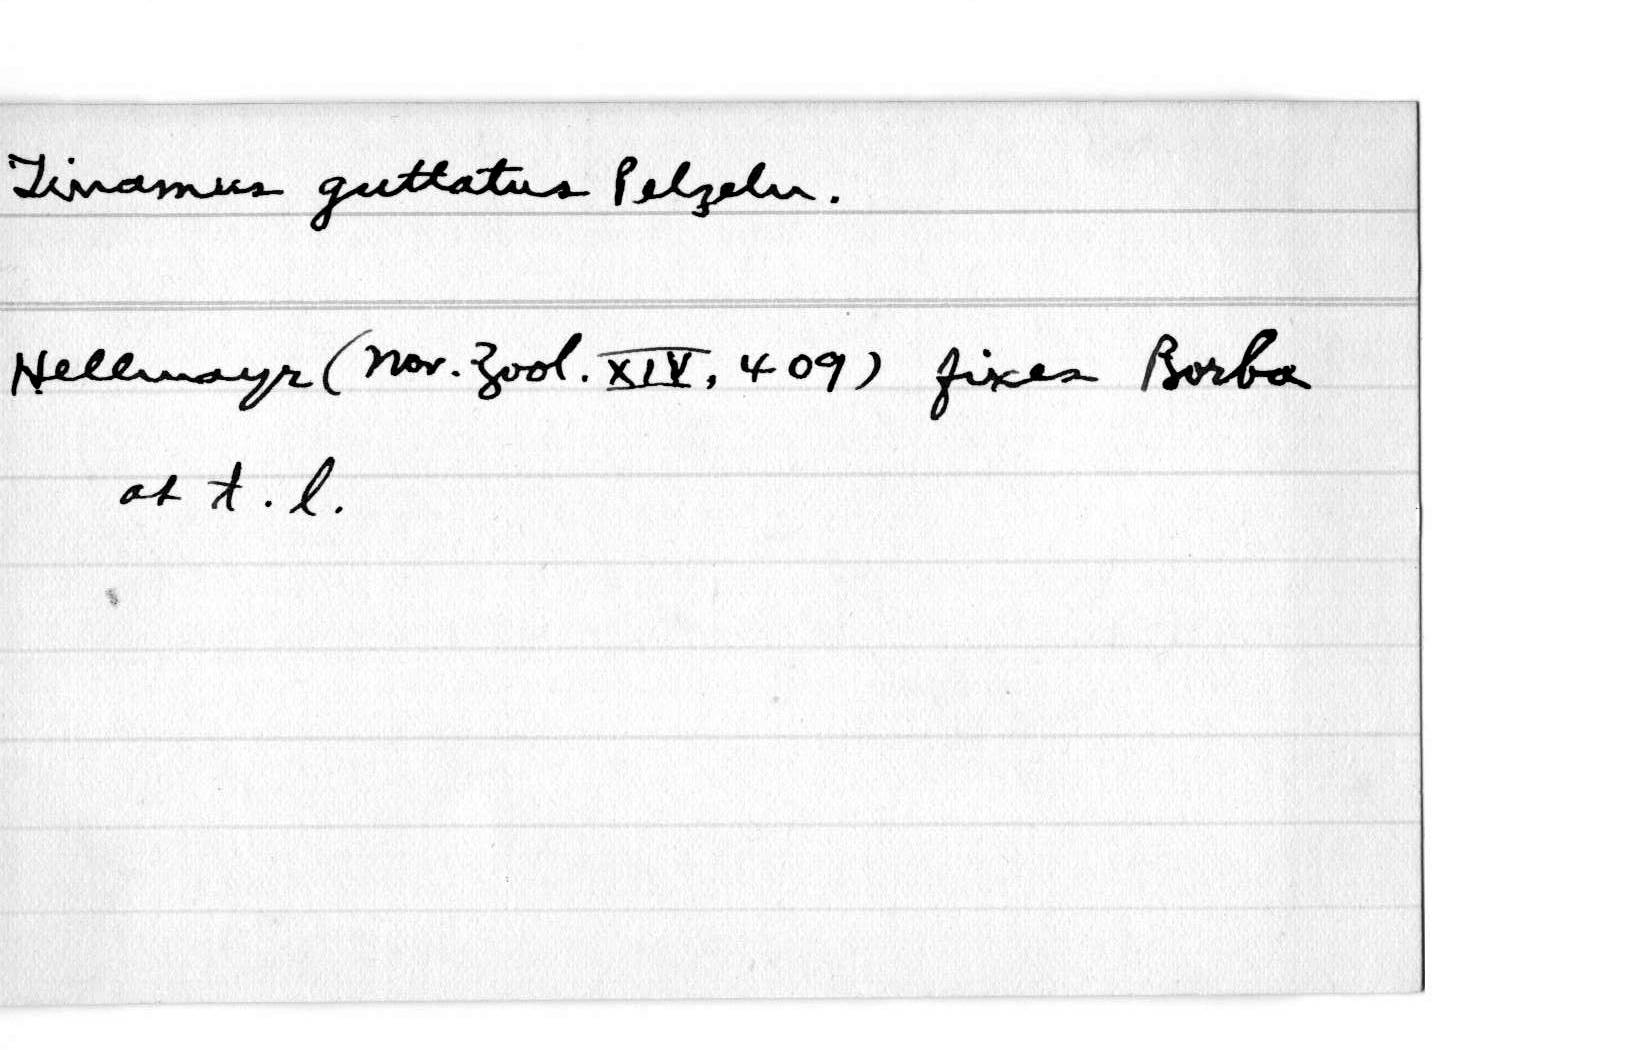 Tinamus guttatus Pelzeln.
Hellmayr (Nov. Zool. XIV, 409) fixes Borba
as t. l.